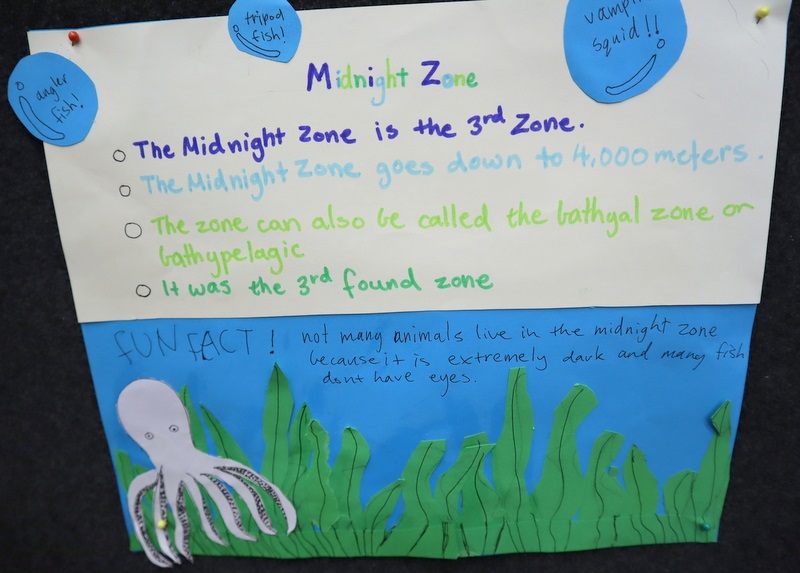 tripod
fish!
vampire
squid!!
angler
fish!
Midnight Zone
The Midnight Zone is the 3rd Zone.
The Midnight Zone goes down to 4,000 meters.
The zone can also be called the bathyal zone or
bathypelagic
It was the 3rd found zone
FUN FACT! not many animals live in the midnight zone
because it is extremely dark and many fish
dont have eyes.